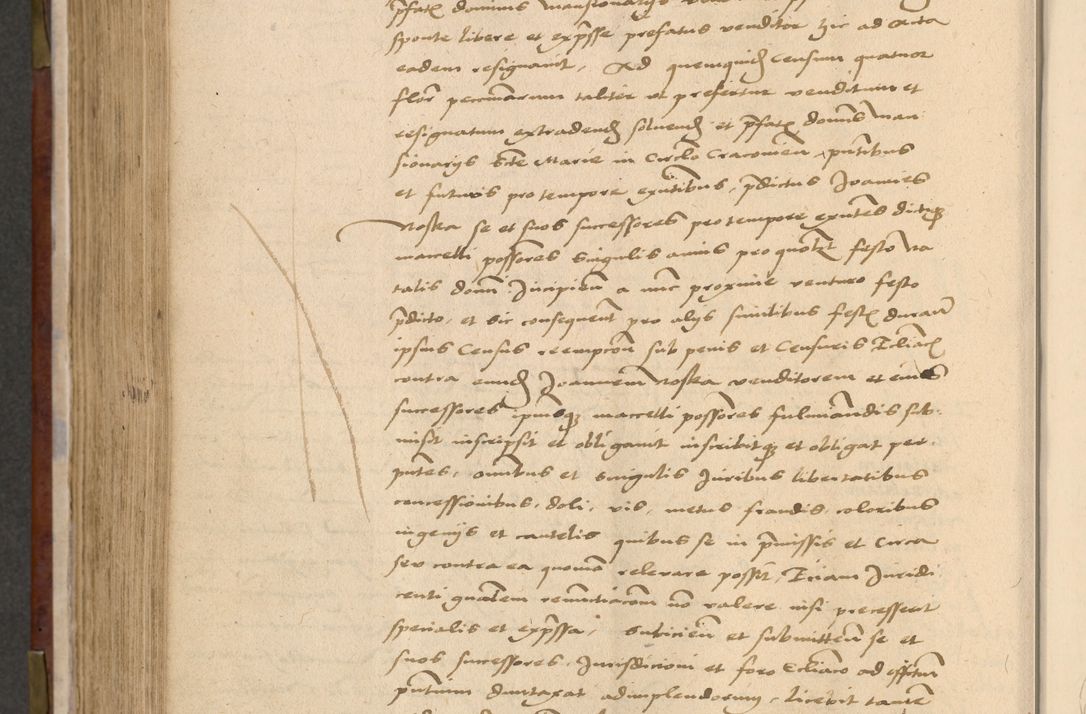 sponte libere et expsse prefatus venditor hic ad Acta
eadem resignavit, Ad quemquid Censum quatuor
flor pecuniarum taliter ut prefertur venditum et
resignatum extradend solvend et pfat domis Man
sionarys Scte Marie in Circlo Cracovien, pntibus
et futuris pro tempore exntibus, pdictus Joannes
Noska se et suos successores pro tempore exntes dictiq
maccelli possores singulis annis pro quolzt festo Na
talis domi Incipien a nunc proxime venturo festo
pdicto, et sic consequent pro alys similibus fest duran
ipsius Census reempcon sub penis et Censuris Eccliac
contra eund Joannem Noska venditorem et eius
successores ipiusq maccelli possores fulminandis sub
misit inscripsit et obligavit inscribitq et obligat per
pntes, omnibus et singulis Juribus libertatibus
concessionibus, doli, vis, metus fraudis, coloribus
ingenys et cautelis quibus se in pmissis et circa
seu contra ea quomo relevare possit, Etiam Juridi
centi gnalem renunciacom no valere nisi precesserit
specialis et expssa, subicien et submitten se et
suos successores, Jurisdicioni et foro Eccliaco ad effctum
pntium duntaxat adimplendorum, licebit tamen